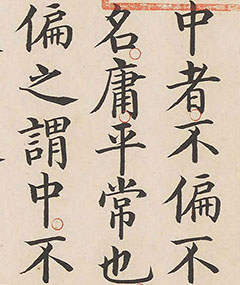 中者不偏不
名庸平常也
偏之謂中不